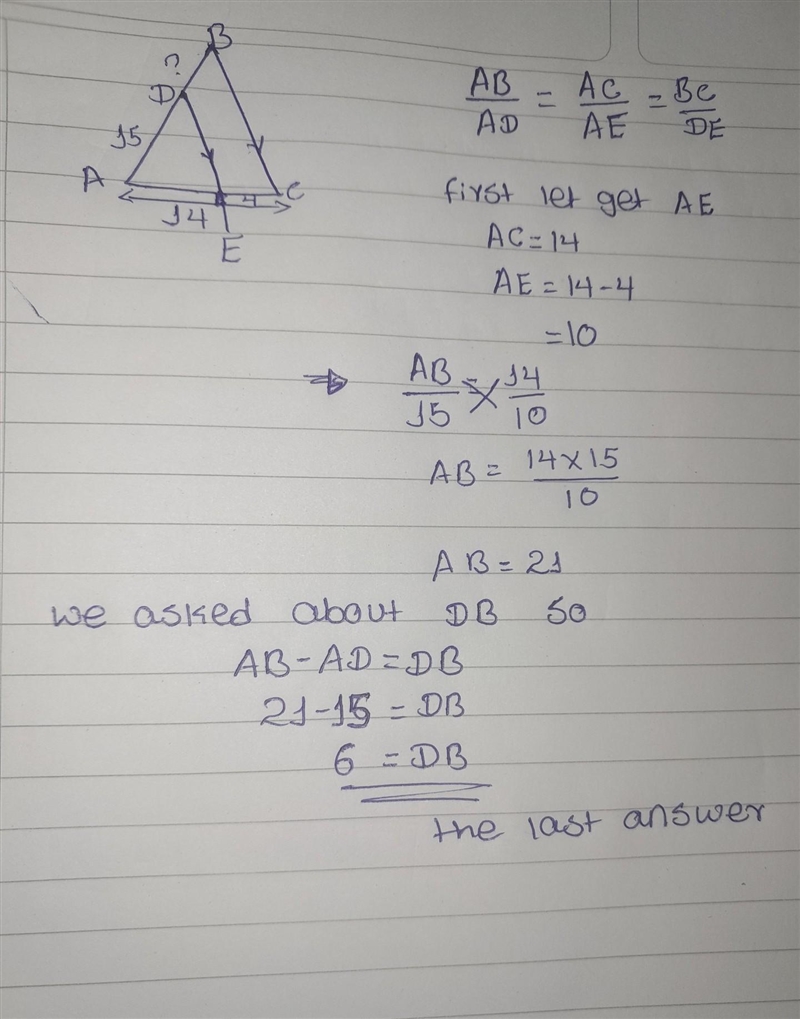 B
?
D
15
A
C
4
14
E
AB/AD = AC/AE = BC/DE
first let get AE
AC = 14
AE = 14 - 4
= 10
⇒ AB/15 = 14/10
AB = 14 × 15/10
AB = 21
we asked about DB so
AB - AD = DB
21 - 15 = DB
6 = DB
the last answer